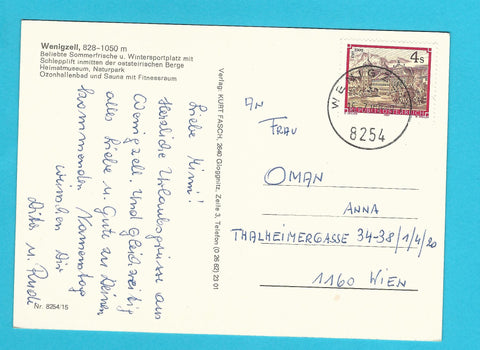 Wenigzell, 828-1050 m
Beliebte Sommerfrische u. Wintersportplatz mit
Schlepplift inmitten der oststeirischen Berge
Heimatmuseum, Naturpark
Ozonhallenbad und Sauna mit Fitnessraum
Liebe Minni!
Herzliche Urlaubsgrüsse aus
Wenigzell. Und gleichzeitig
alles Liebe u. Gute zu Deinem
kommenden Namenstag
wünschen Dir
u. Rudi
Nr. 8254/15
Verlag: KURT FASCH, 2640 Gloggnitz, Zeile 3, Telefon (0 26 62) 23 01
4 S
REPUBLIK ÖSTERREICH
WENIGZELL
8254
AN
FRAU
OMAN
ANNA
THALHEIMERGASSE 34-38/1/4/20
1160 WIEN